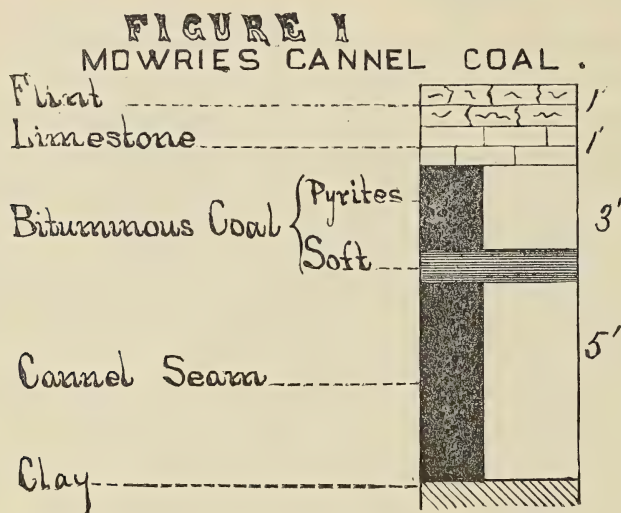 FIGURE I
MOWRIES CANNEL COAL.
Flint 1'
Limestone 1'
Bituminous Coal { Pyrites 3'
Soft
Cannel Seam 5'
Clay